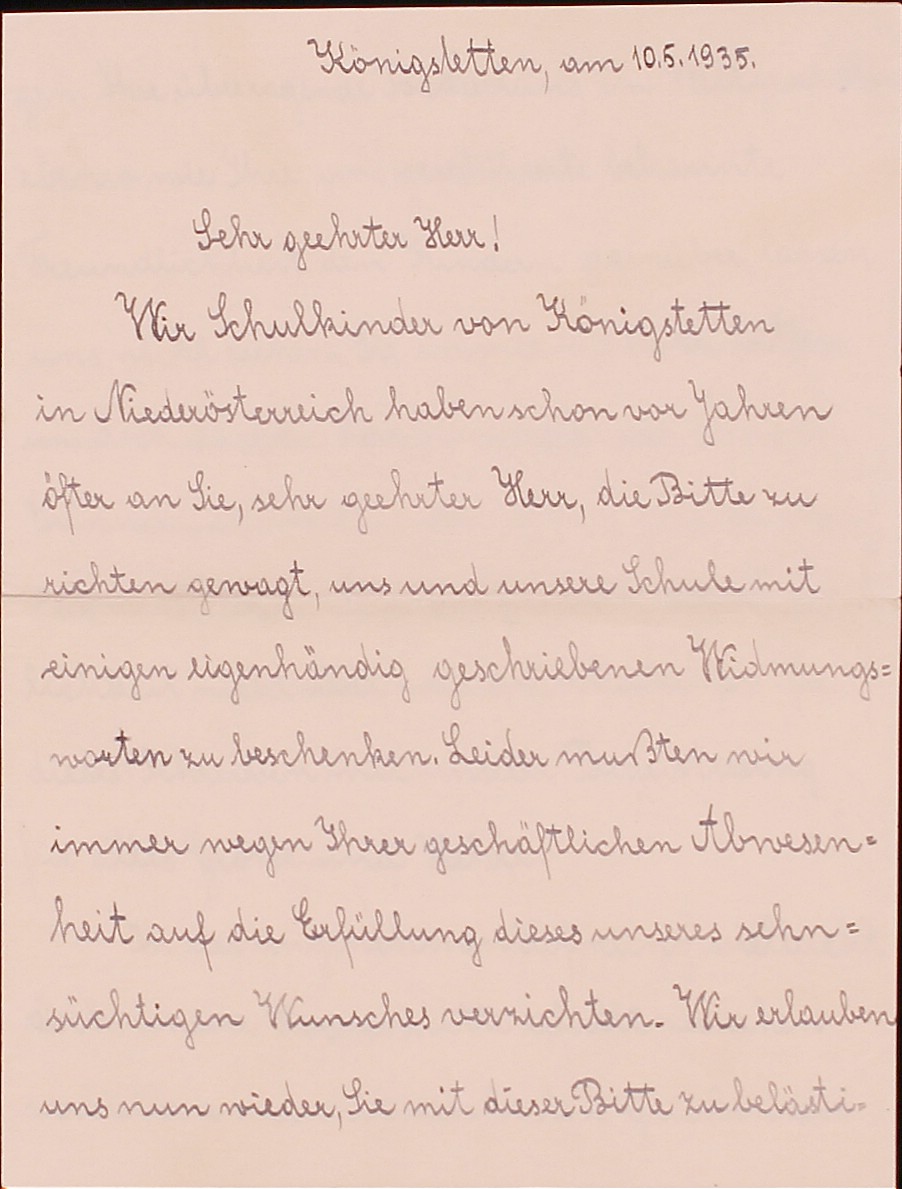 Königstetten, am 10.5.1935.
Sehr geehrter Herr!
Wir Schulkinder von Königstetten
in Niederösterreich haben schon vor Jahren
öfter an Sie, sehr geehrter Herr, die Bitte zu
richten gewagt, uns und unsere Schule mit
einigen eigenhändig geschriebenen Widmungs=
worten zu beschenken. Leider mußten wir
immer wegen Ihrer geschäftlichen Abwesen=
heit auf die Erfüllung dieses unseres sehn=
süchtigen Wunsches verzichten. Wir erlauben
uns nun wieder, Sie mit dieser Bitte zu belästi=